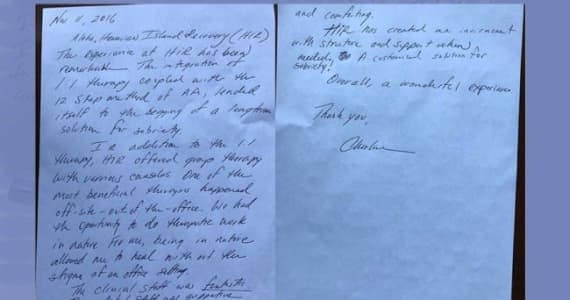 Nov 11, 2016
Aloha, Hawaiian Island Recovery (HIR)
The experience at HIR has been
remarkable. The integration of
1:1 therapy coupled with the
12 step method of AA, lended
itself to the begging of a longterm
solution for sobriety.
I a addition to the 1:1
therapy, HIR offered group therapy
with various consolos One of the
most beneficial therapies happened
off-site-out of the-office. We had
the oportunity to do theraputic work
in nature For me, being in nature
allowed me to heal with out the
stigma of an office setting.
The clinical staff was fantastic
staff was supportive
and comforting.
HIR has created an
with structure and support when
needed, A customized solution for
sobriety!
Overall, a wonderful experience
Thank you,